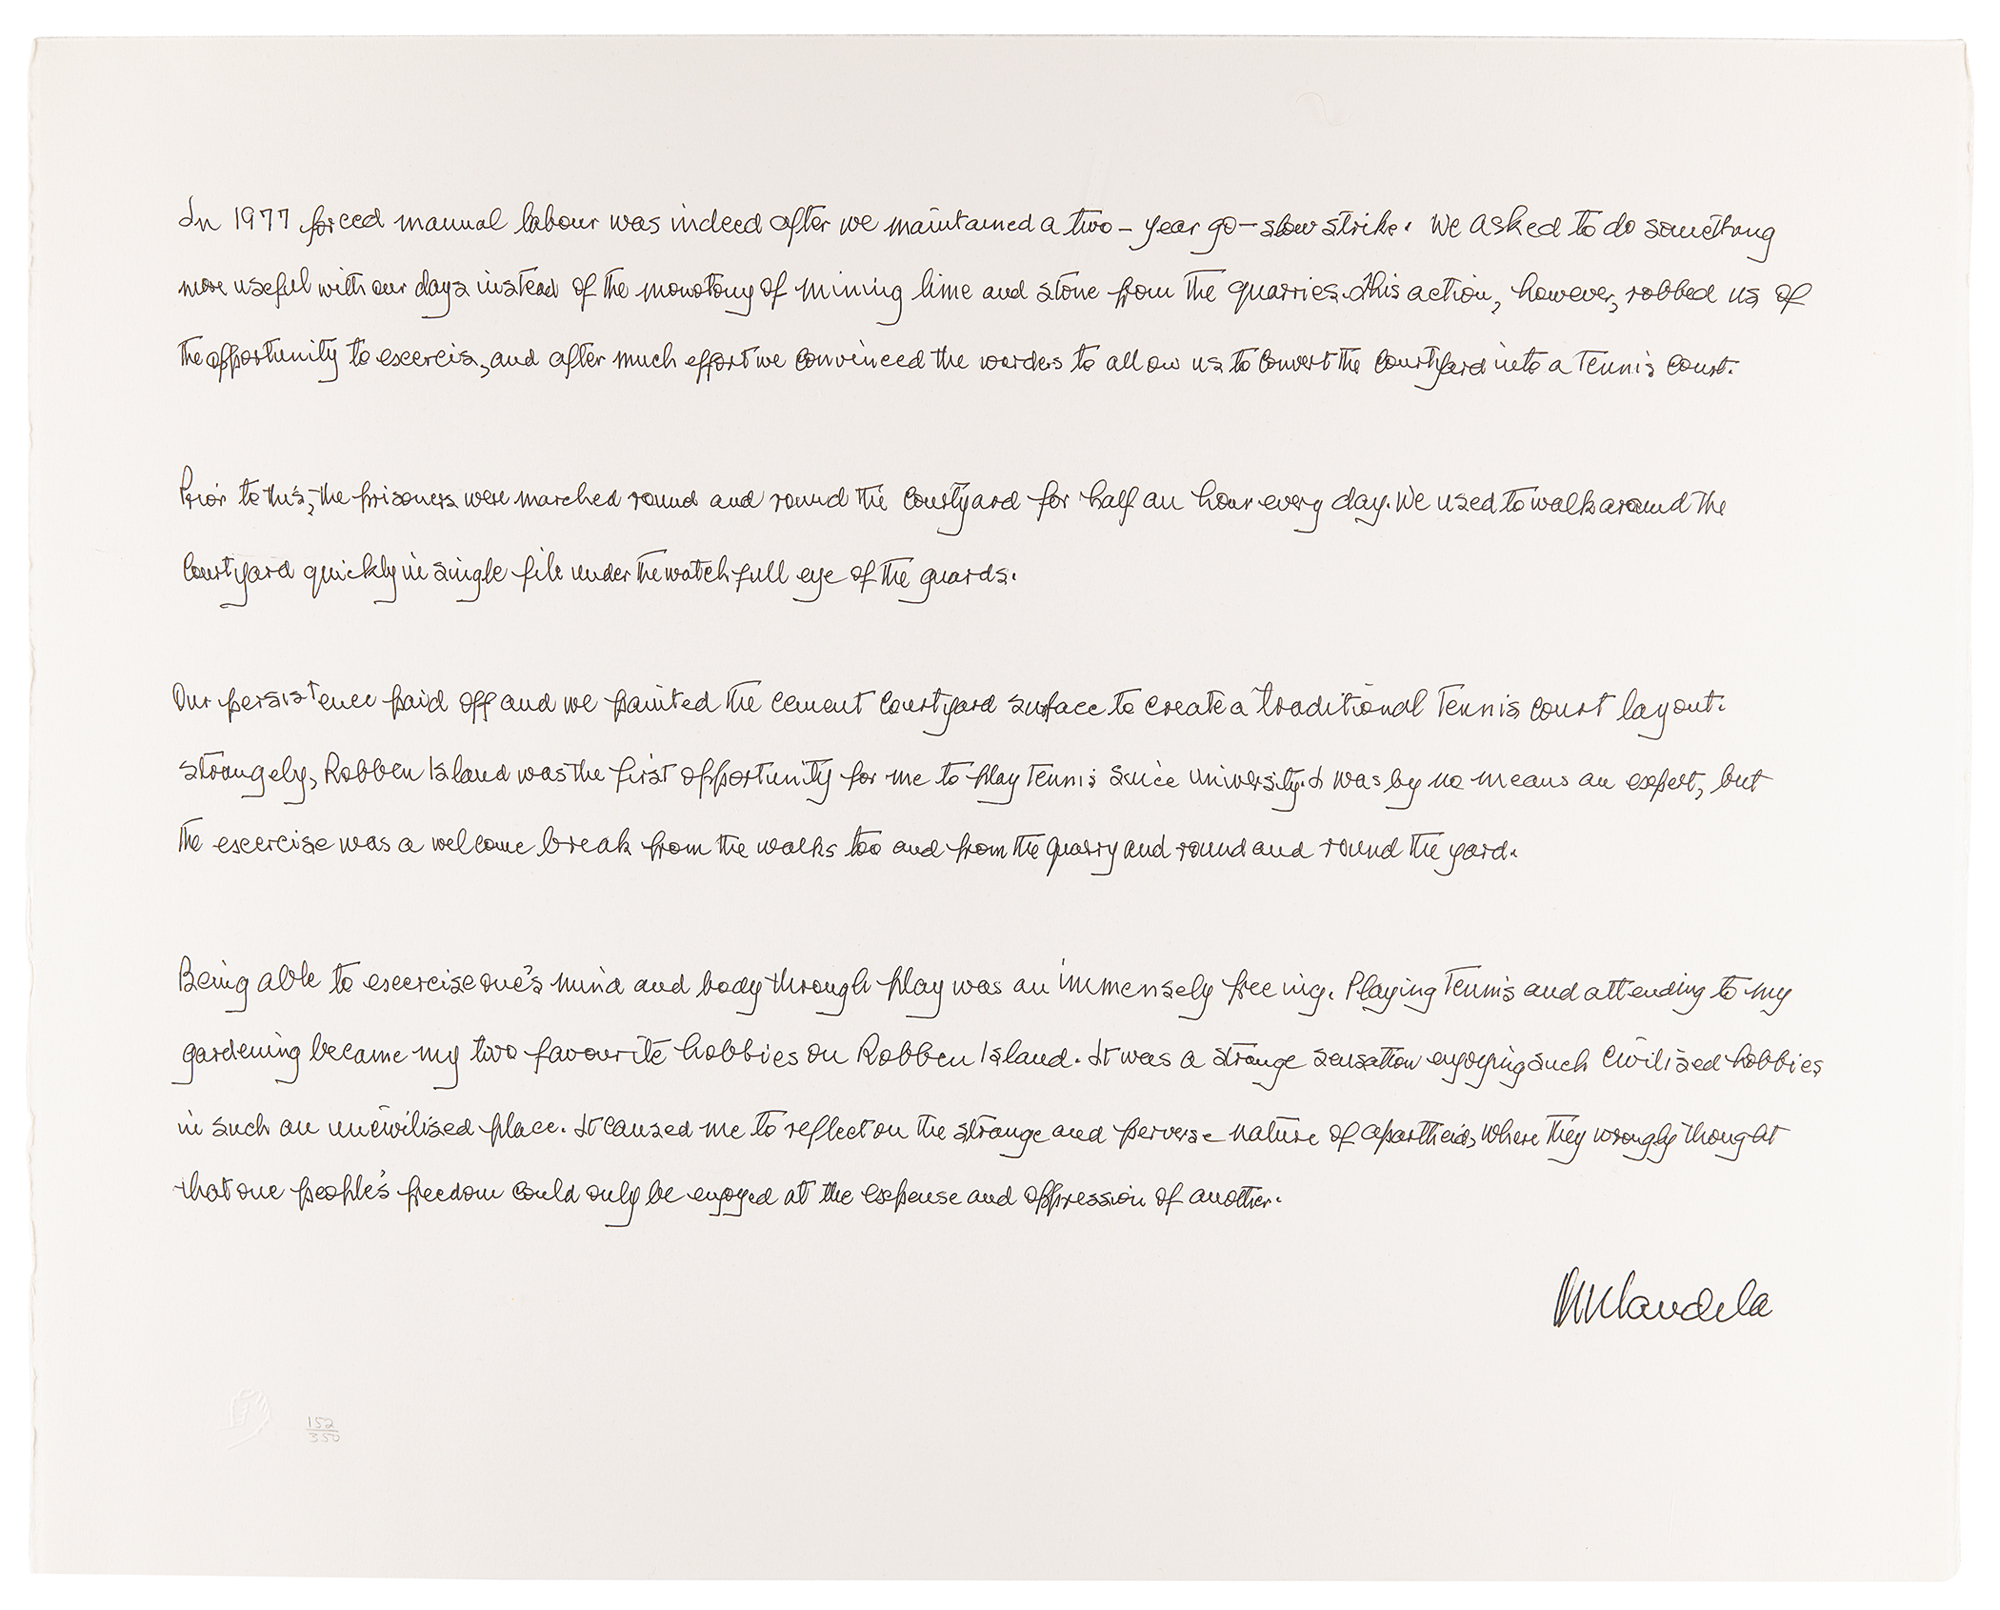 In 1977 forced manual labour was indeed after we maintained a two-year go-slow strike. We asked to do something
more useful with our days instead of the monotony of mining lime and stone from the quarries. This action, however, robbed us of
the opportunity to excercis, and after much effort we convinced the warders to allow us to convert the courtyard into a Tennis court.
Prior to this, the prisoners were marched round and round the courtyard for half an hour every day. We used to walk around the
courtyard quickly in single file under the watchfull eye of the guards.
Our persistence paid off and we painted the cement courtyard surface to create a traditional Tennis court layout.
Strangely, Robben Island was the first opportunity for me to play Tennis since university. I was by no means an expert, but
the excercise was a welcome break from the walks too and from the quarry and round and round the yard.
Being able to excercise one's mind and body through play was an immensely freeing. Playing Tennis and attending to my
gardening became my two favourite hobbies on Robben Island. It was a strange sensation enjoying such civilised hobbies
in such an uncivilised place. It caused me to reflect on the strange and perverse nature of apartheid, where they wrongly thought
that one people's freedom could only be enjoyed at the expense and oppression of another.
NMandela
152/350